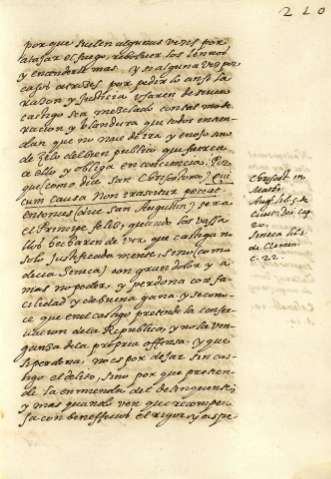 210
por que suelen algunas vezes por
atajar el fuego, rebolver los leños
y encenderle mas. y si alguna vez por
casos atrozes por pedirlo ansi la
razon y justicia usaren de severo
castigo sea mezclado con tal mode
racion y blandura que todos entien
dan que no nace de yra y enojo sino
de zelo del bien publico que fuerça
a ello y obliga en conciencia. Por
que (como dize San Chrisostomo) qui
cum causa non irascitur peccat
entonces (dize San Augustin) sera
el Principe feliz, quando los vasa
llos hecharen de ver que castiga no
solo justificadamente, sino (como
dezia Seneca) con gran dolor y a
mas no poder, y perdona con fa
cilidad y de buena gana. y se cono
ce que en el castigo pretende la conser
vacion de la Republica, y no la ven
gança de la propria offensa. y que
si perdona, no es por dexar sin cas
tigo el delito, sino por que preten
de la enmienda del delinquente,
y mas quando ven que recompen
sa con beneficios el rigor y aspe
Chrisost. in
Matth.
Aug. lib. 5. de
Civit. Dei ca
Seneca lib. 1.
de Clemen.
c. 22.